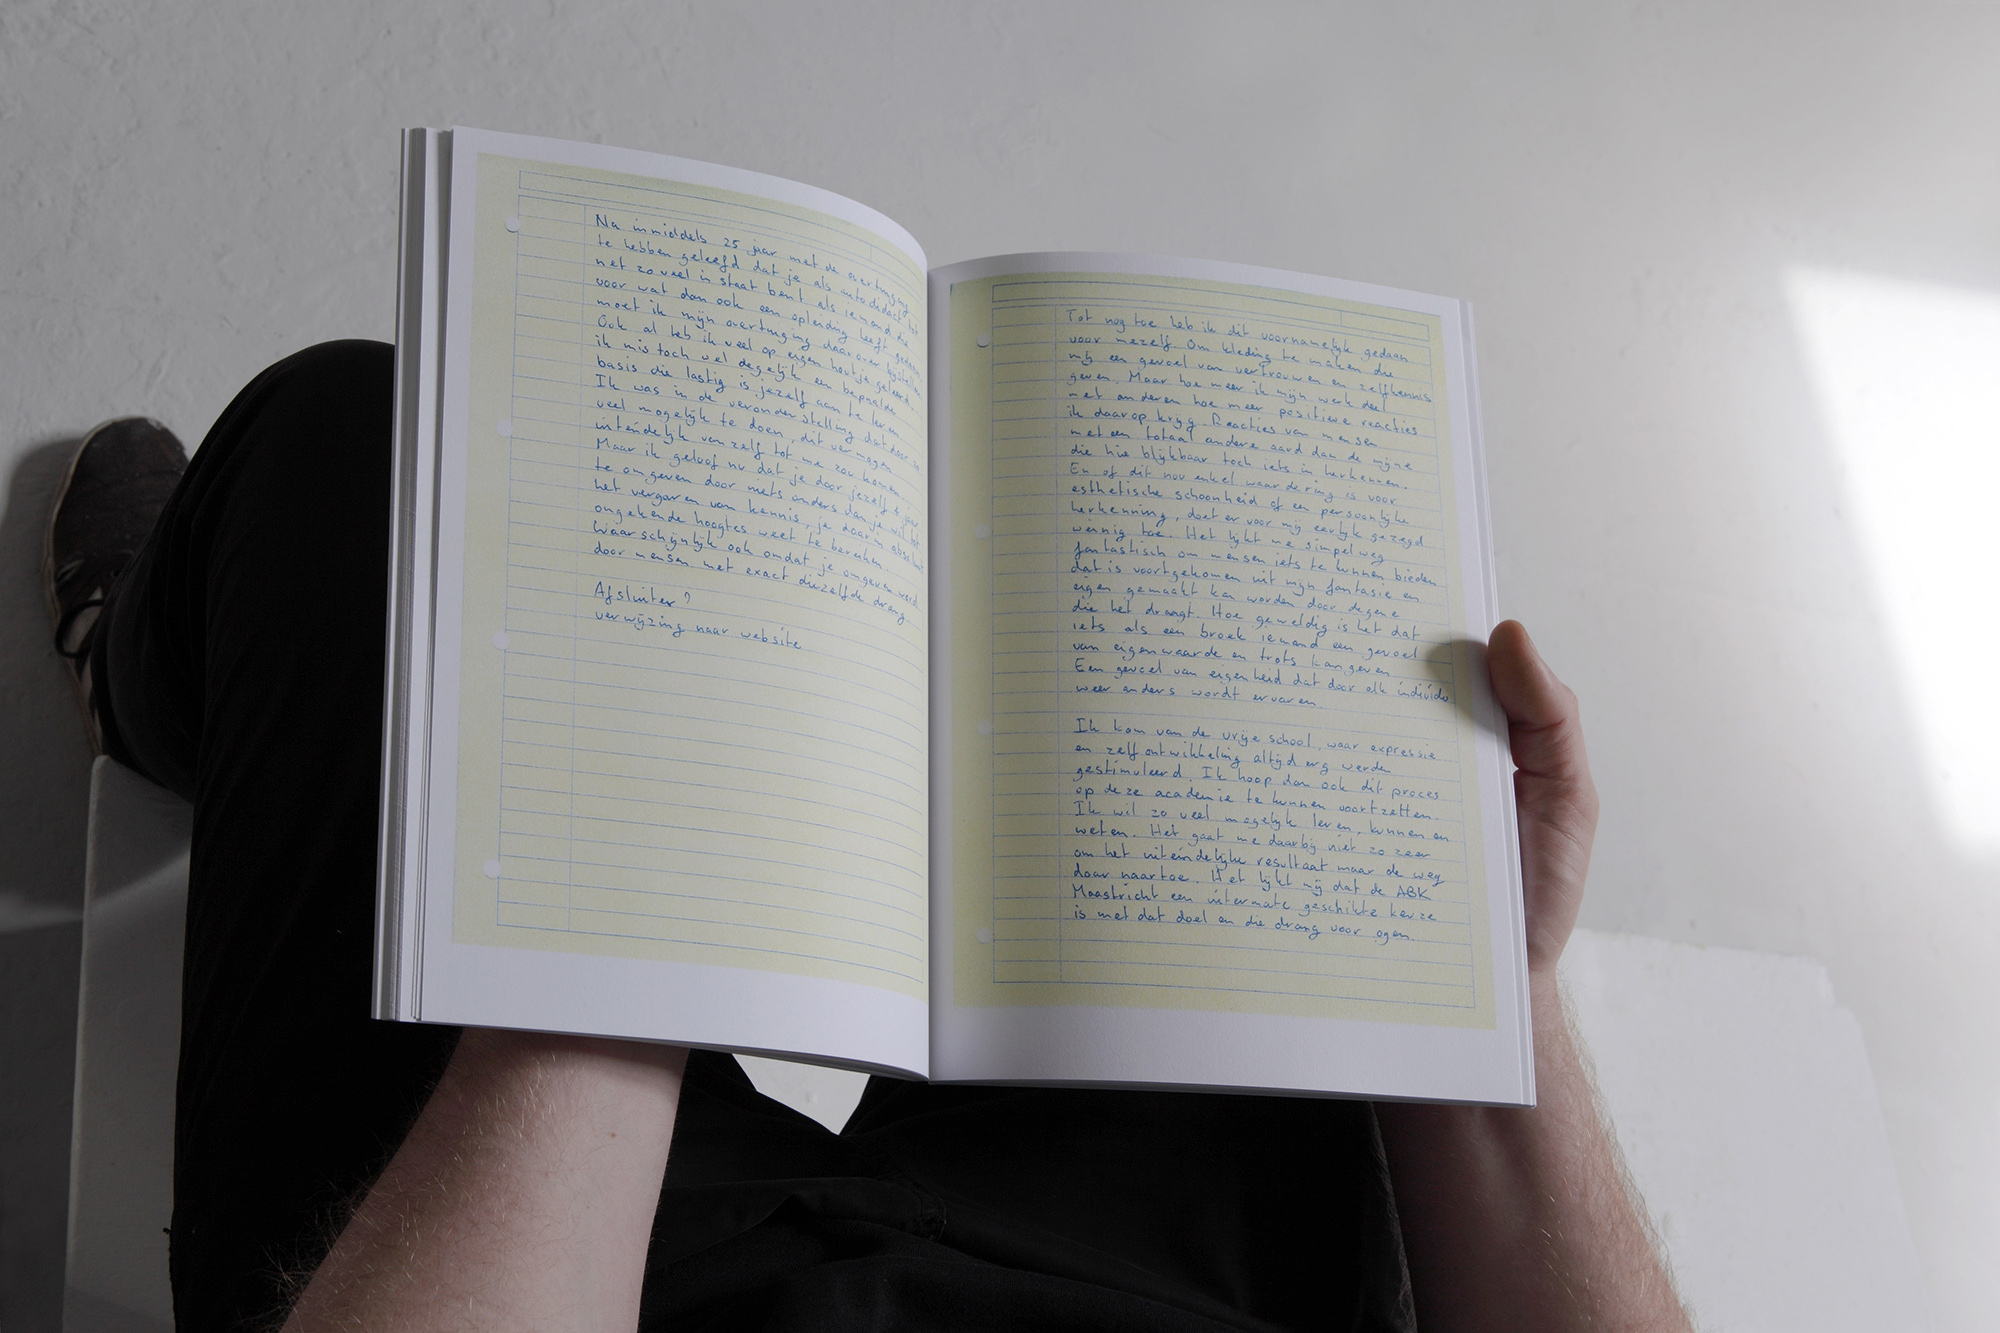 Na inmiddels 25 jaar met de overtuiging
te hebben geleefd dat je als autodidact tot
net zo veel in staat bent als iemand die
voor wat dan ook een opleiding heeft gedaan
moet ik mijn overtuiging daarover bijstellen.
Ook al heb ik veel op eigen houtje geleerd,
ik mis toch wel degelijk een bepaalde
basis die lastig is jezelf aan te leren.
Ik was in de veronderstelling dat door zo
veel mogelijk te doen, dit vermogen
uiteindelijk vanzelf tot me zou komen.
Maar ik geloof nu dat je door jezelf te
te omgeven door niets anders dan je wil tot
het vergaren van kennis, je daarin absoluut
ongekende hoogtes weet te bereiken.
Waarschijnlijk ook omdat je omgeven wordt
door mensen met exact diezelfde drang.
Afsluiter?
verwijzing naar website
Tot nog toe heb ik dit voornamelijk gedaan
voor mezelf. Om kleding te maken die
mij een gevoel van vertrouwen en zelfkennis
geven. Maar hoe meer ik mijn werk deel
met anderen hoe meer positieve reacties
ik daarop krijg. Reacties van mensen
met een totaal andere aard dan de mijne
die hier blijkbaar toch iets in herkennen.
En of dit nou enkel waardering is voor
esthetische schoonheid of een persoonlijke
herkenning, doet er voor mij eerlijk gezegd
weinig toe. Het lijkt me simpelweg
fantastisch om mensen iets te kunnen bieden
dat is voortgekomen uit mijn fantasie en
eigen gemaakt kan worden door degene
die het draagt. Hoe geweldig is het dat
iets als een broek iemand een gevoel
van eigenwaarde en trots kan geven
Een gevoel van eigenheid dat door elk individu
weer anders wordt ervaren.
Ik kom van de vrije school, waar expressie
en zelfontwikkeling altijd erg werden
gestimuleerd. Ik hoop dan ook dit proces
op deze academie te kunnen voortzetten.
Ik wil zo veel mogelijk leren, kunnen en
weten. Het gaat me daarbij niet zo zeer
om het uiteindelijke resultaat maar de weg
daar naartoe. Het lijkt mij dat de ABK
Maastricht een uitermate geschikte keuze
is met dat doel en die drang voor ogen.